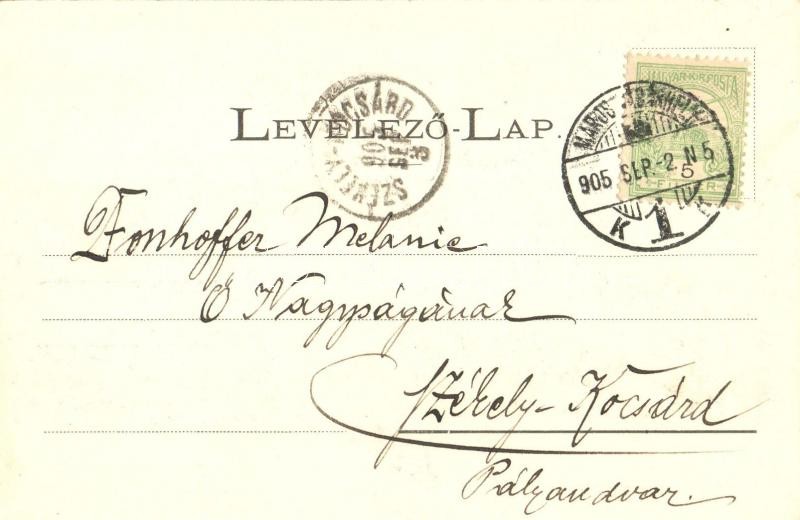 MAGYAR·KIR·POSTA
MAROS
905 SEP.-2. N 5
K 1
5
LEVELEZŐ-LAP.
SZÉKELY-KOCSÁRD
905 SEP 3
Fonhoffer Melanie
Ő Nagyságának
Székely-Kocsárd
Pályaudvar.